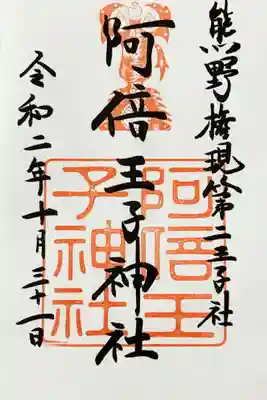 熊野権現第二王子社
阿倍王子神社
令和二年十月三十一日
阿倍王
子神社